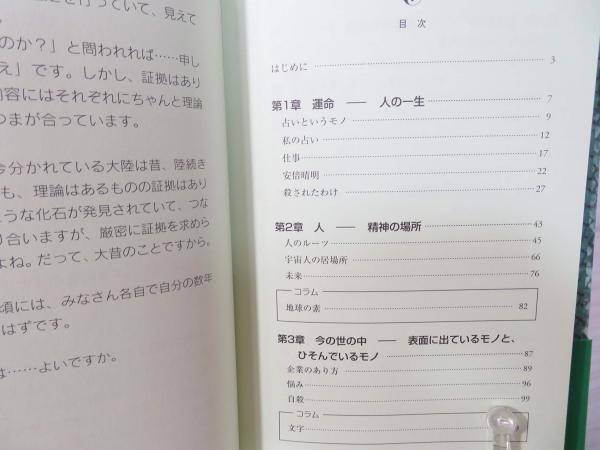 を行っていて、見えて
のか？」と問われれば……申し
え」です。しかし、証拠はあり
内容にはそれぞれにちゃんと理論
つまが合っています。
今分かれている大陸は昔、陸続き
も、理論はあるものの証拠はあり
ような化石が発見されていて、つな
り合いますが、厳密に証拠を求めら
よね。だって、大昔のことですから。
頃には、みなさん各自で自分の数年
はずです。
は……よいですか。
目 次
はじめに 3
第1章 運命 ── 人の一生 7
占いというモノ 9
私の占い 12
仕事 17
安倍晴明 22
殺されたわけ 27
第2章 人 ── 精神の場所 43
人のルーツ 45
宇宙人の居場所 66
未来 76
コラム
地球の素 82
第3章 今の世の中 ── 表面に出ているモノと、
ひそんでいるモノ 87
企業のあり方 89
悩み 96
自殺 99
コラム
文字